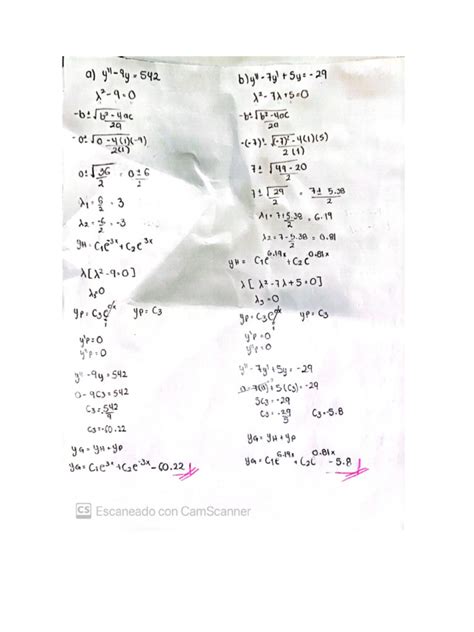 a) y'' - 9y = 542
λ² - 9 = 0
-b ± √b² - 4ac
2a
-0 ± √0 - 4(1)(-9)
2(1)
0 ± √36 = 0 ± 6
2 2
λ₁ = 6 = 3
2
λ₂ = -6 = -3
2
yH = C₁e^3x + C₂e^-3x
λ[λ² - 9 = 0]
λ₃ = 0
yp = C₃e^0x yp = C₃
y'p = 0
y''p = 0
y'' - 9y = 542
0 - 9C₃ = 542
C₃ = 542
9
C₃ = -60.22
yG = yH + yp
yG = C₁e^3x + C₂e^-3x - 60.22
b) y'' - 7y' + 5y = -29
λ² - 7λ + 5 = 0
-b ± √b² - 4ac
2a
-(-7) ± √(-7)² - 4(1)(5)
2(1)
7 ± √49 - 20
2
7 ± √29 = 7 ± 5.38
2 2
λ₁ = 7 + 5.38 = 6.19
2
λ₂ = 7 - 5.38 = 0.81
2
yH = C₁e^6.19x + C₂e^0.81x
λ[λ² - 7λ + 5 = 0]
λ₃ = 0
yp = C₃e^0x yp = C₃
y'p = 0
y''p = 0
y'' - 7y' + 5y = -29
0 - 7(0) + 5(C₃) = -29
5C₃ = -29
C₃ = -29 C₃ = -5.8
5
yG = yH + yp
yG = C₁e^6.19x + C₂e^0.81x - 5.8
CS Escaneado con CamScanner